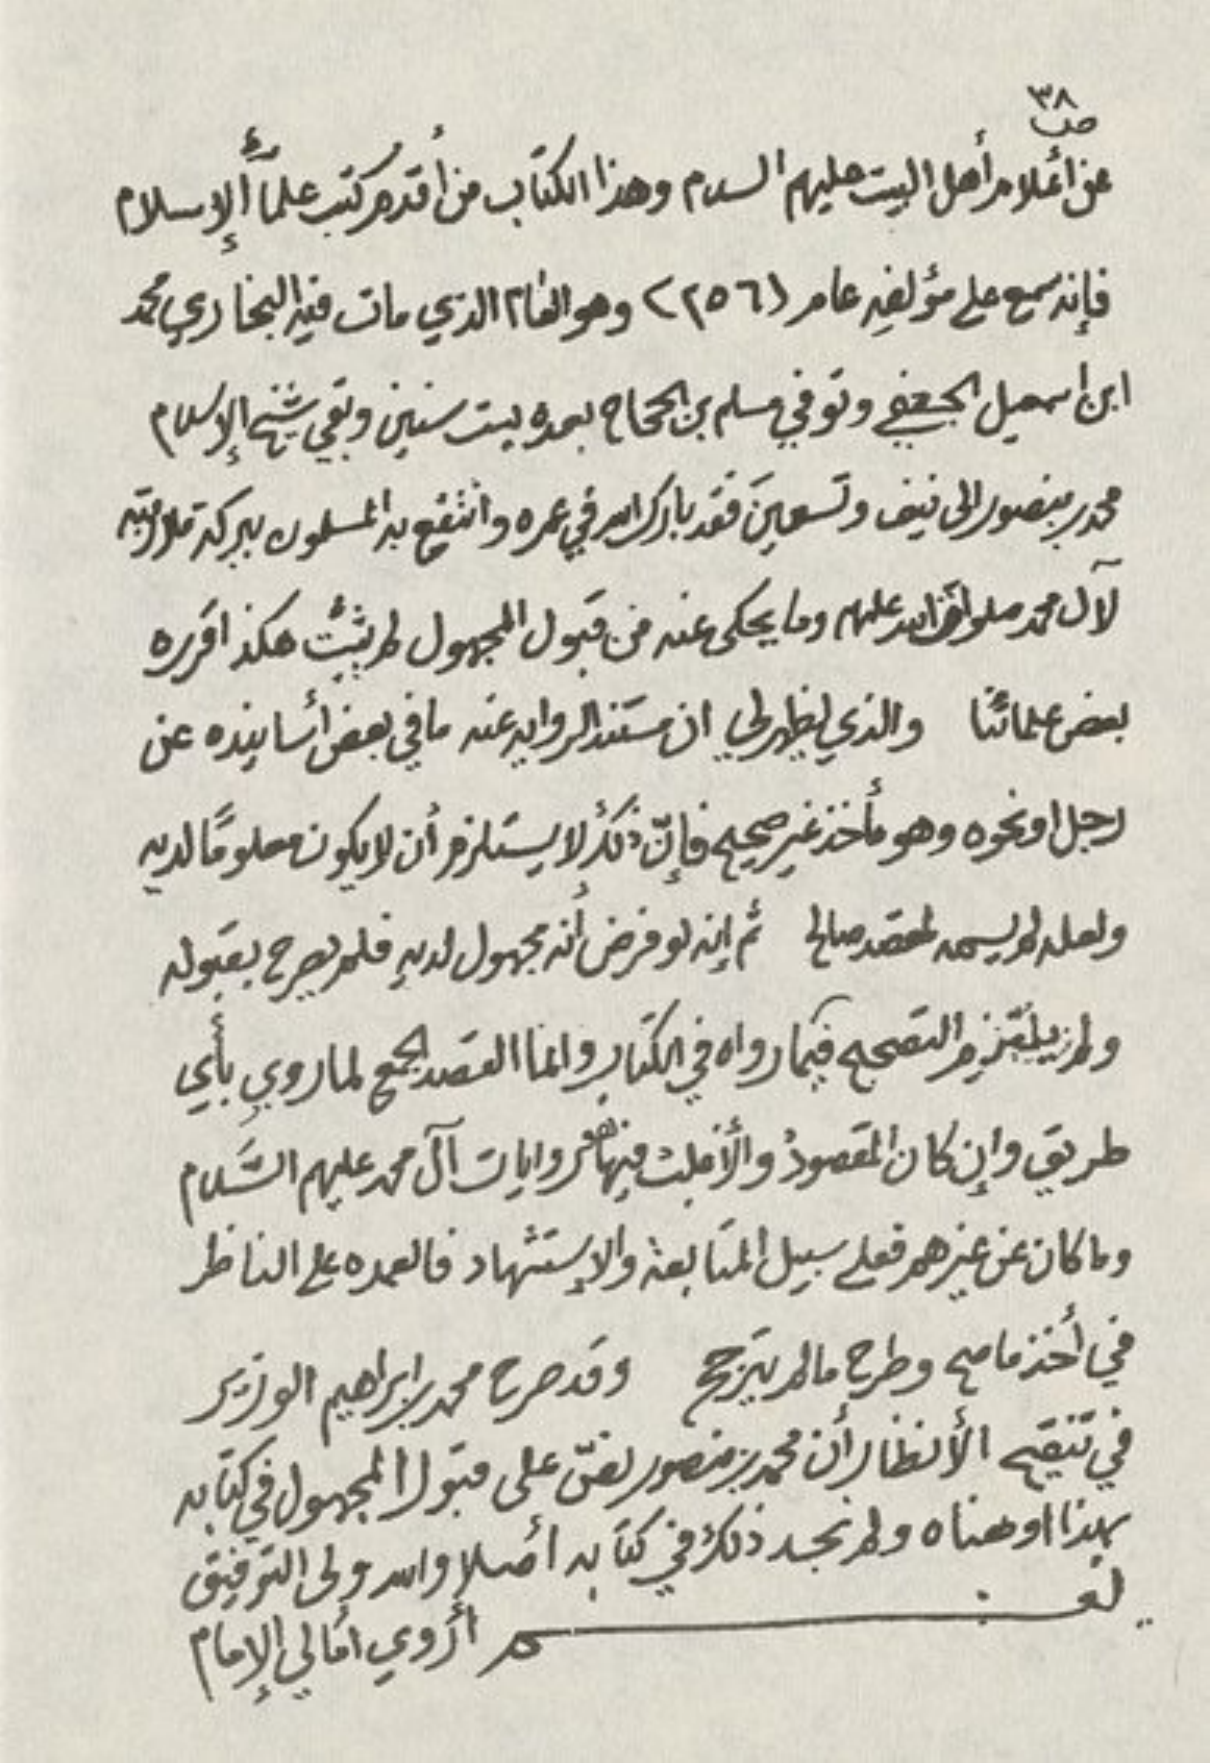 ٣٨
ص
عن أعلام أهل البيت عليهم السلام وهذا الكتاب من أقدم كتب علماء الإسلام
فإنه سمع على مؤلفه عام (٢٥٦) وهو العام الذي مات فيه البخاري محمد
ابن اسمعيل الجعفي وتوفي مسلم بن الحجاج بعده بست سنين وبقي شيخ الإسلام
محمد بن منصور الى نيف وتسعين فقد بارك الله في عمره وانتفع به المسلمون ببركة ملازمته
لآل محمد صلوات الله عليهم وما يحكى عنه من قبول المجهول لم يثبت هكذا قرره
بعض علمائنا والذي يظهر لي ان مستند الرواية عنه ما في بعض أسانيده عن
رجل او نحوه وهو مأخذ غير صحيح فإنّ ذلك لا يستلزم أن لا يكون معلومًا لديه
ولعله لم يسمه لمقصد صالح ثم إنه لو فرض أنه مجهول لديه فلم يصرح بقبوله
ولم يلتزم التصحيح فيما رواه في الكتاب وانما القصد الجمع لما روي بأي
طريق وإن كان المقصود والأغلب فيها هو روايات آل محمد عليهم السَّلام
وما كان عن غيرهم فعلى سبيل المتابعة والإستشهاد فالعمده على الناظر
في أخذ ما صح وطرح ما لم يترجح وقد صرح محمد بن إبراهيم الوزير
في تنقيح الأنظار أن محمد بن منصور نصّ على قبول المجهول في كتابه
بهذا او معناه ولم نجد ذلك في كتابه أصلا والله ولي التوفيق
نعم أروي أمالي الإمام